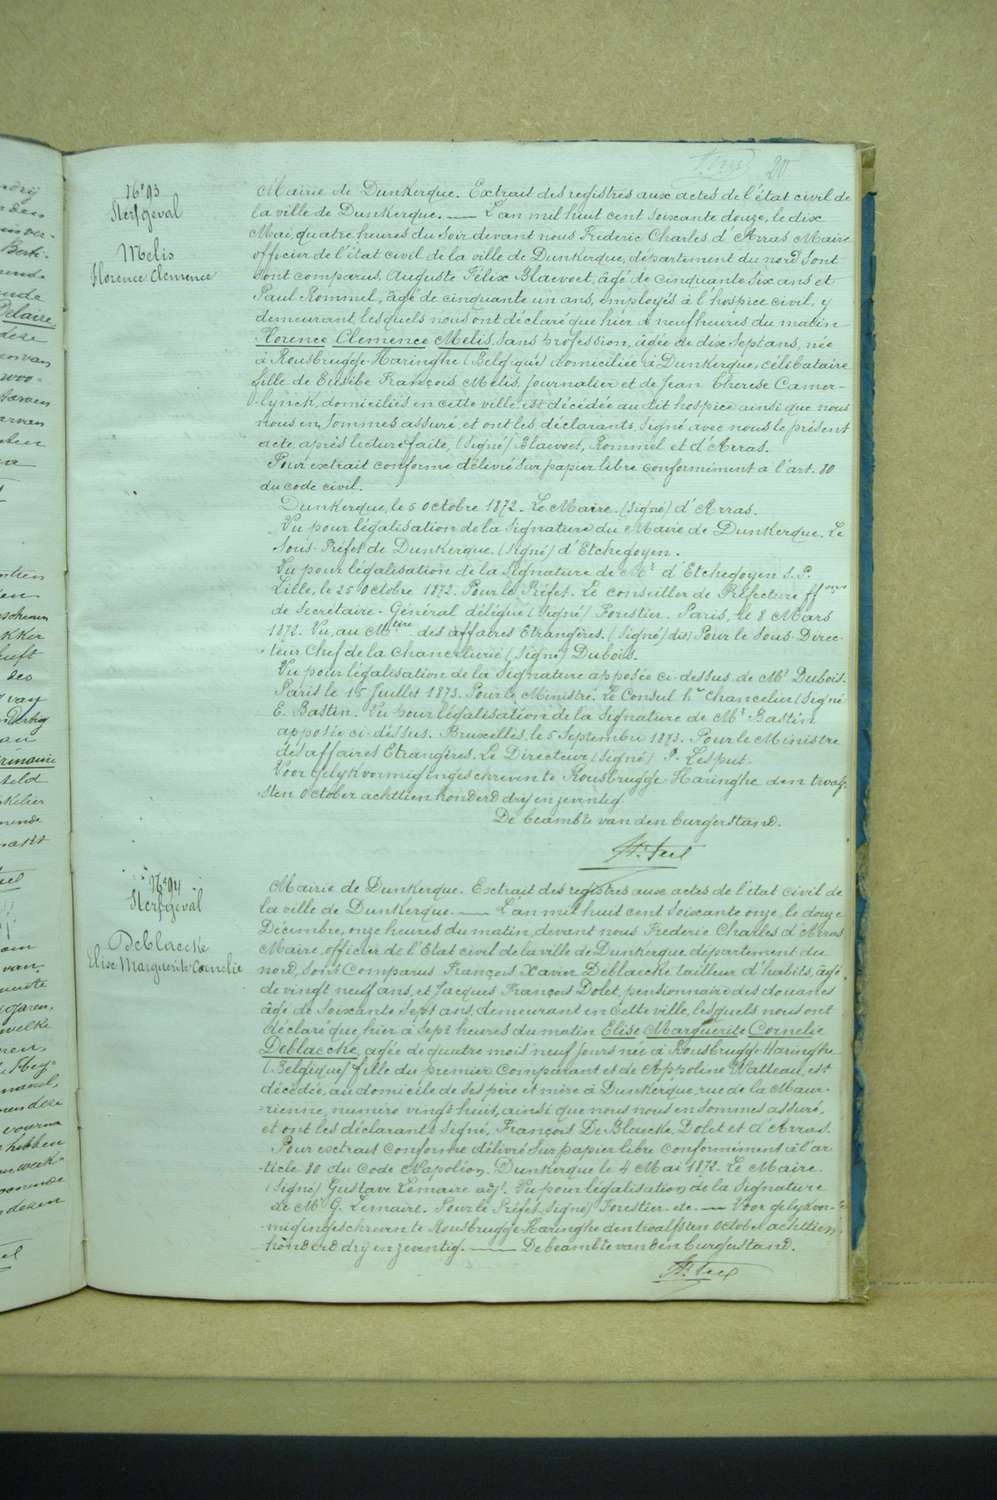 20
N° 93
Sterfgeval
Melis
Florence Clemence
Mairie de Dunkerque. Extrait des registres aux actes de l'état civil de
la ville de Dunkerque. — L'an mil huit cent soixante douze, le dix
Mai, quatre heures du soir devant nous Frederic Charles d'Arras Maire
officier de l'état civil de la ville de Dunkerque, département du nord sont
sont comparus, Auguste Félix Blaevoet, âgé de cinquante six ans et
Paul Rommel, âgé de cinquante un ans, employés à l'hospice civil, y
demeurant, lesquels nous ont déclaré que hier à neuf heures du matin
Florence Clemence Melis, sans profession, âgée de dix sept ans, née
à Rousbrugge-Haringhe (Belgique) domiciliée à Dunkerque, célibataire
fille de Eusibe François Melis, journalier et de Jean Therese Camer-
lynck, domiciliés en cette ville est décédée au dit hospice ainsi que nous
nous en sommes assuré, et ont les déclarants, signé avec nous le présent
acte après lecture faite, (signé) Blaevoet, Rommel et d'Arras.
Pour extrait conforme délivré sur papier libre conformément à l'art. 80
du code civil.
Dunkerque, le 5 Octobre 1872. Le Maire. (signé) d'Arras.
Vu pour légalisation de la signature du Maire de Dunkerque. Le
Sous-Préfet de Dunkerque. (signé) d'Etchegoyen.
Vu pour légalisation de la signature de Mr d'Etchegoyen S.P.
Lille, le 25 Octobre 1872. Pour le Préfet. Le conseiller de Préfecture ffons
de Secrétaire-Général délégué (signé) Forestier. Paris, le 8 Mars
1873. Vu, au Mtère des affaires Etrangères. (signé) dis) Pour le Sous-Direc-
teur Chef de la chancellerie (signé) Dubois.
Vu pour légalisation de la signature apposée ci-dessus de Mr Dubois.
Paris le 15 Juillet 1873. Pour le Ministre. Le Consul hre chancelier (signé
E. Bastin. Vu pour légalisation de la signature de Mr Bastin
apposée ci-dessus. Bruxelles, le 5 Septembre 1873. Pour le Ministre
des affaires Etrangères. Le Directeur (signé) P. Lesput.
Voor gelykvormig ingeschreven te Rousbrugge-Haringhe den twaalf-
sten October achttien honderd dry en zeventig
De beambte van den burgerstand.
N° 94
Sterfgeval
Deblaecke
Elise Marguerite Cornelie
Mairie de Dunkerque. Extrait des registres aux actes de l'état civil de
la ville de Dunkerque. — L'an mil huit cent soixante onze, le douze
Décembre, onze heures du matin, devant nous Frederic Charles d'Arras
Maire, officier de l'Etat civil de la ville de Dunkerque département du
nord, sont Comparus François Xavier Deblaecke tailleur d'habits, âgé
de vingt neuf ans, et Jacques François Dolet, pensionnaire des douanes
âgé de soixante sept ans, demeurant en cette ville, lesquels nous ont
déclaré que, hier à sept heures du matin Elise Marguerite Cornelie
Deblaecke, agée de quatre mois neuf jours née à Rousbrugge-Haringhe
(Belgique) fille du premier Comparant et de Appoline Watteau, est
décédée, au domicile de ses père et mère à Dunkerque, rue de la Maur-
rienne, numéro vingt huit, ainsi que nous nous en sommes assuré,
et ont les déclarants signé, François De Blaecke, Dolet et d'Arras.
Pour extrait conforme délivré sur papier libre conformément à l'ar-
ticle 80 du Code Napoléon. Dunkerque le 4 Mai 1872. Le Maire.
(signé) Gustave Lemaire adjt. Vu pour légalisation de la signature
de Mr G. Lemaire. Pour le Préfet, signé) Forestier. etc. — Voor gelykvor-
mig ingeschreven te Rousbrugge-Haringhe den twalfsten October achttien
honderd dry en zeventig. — De beambte van den burgerstand.